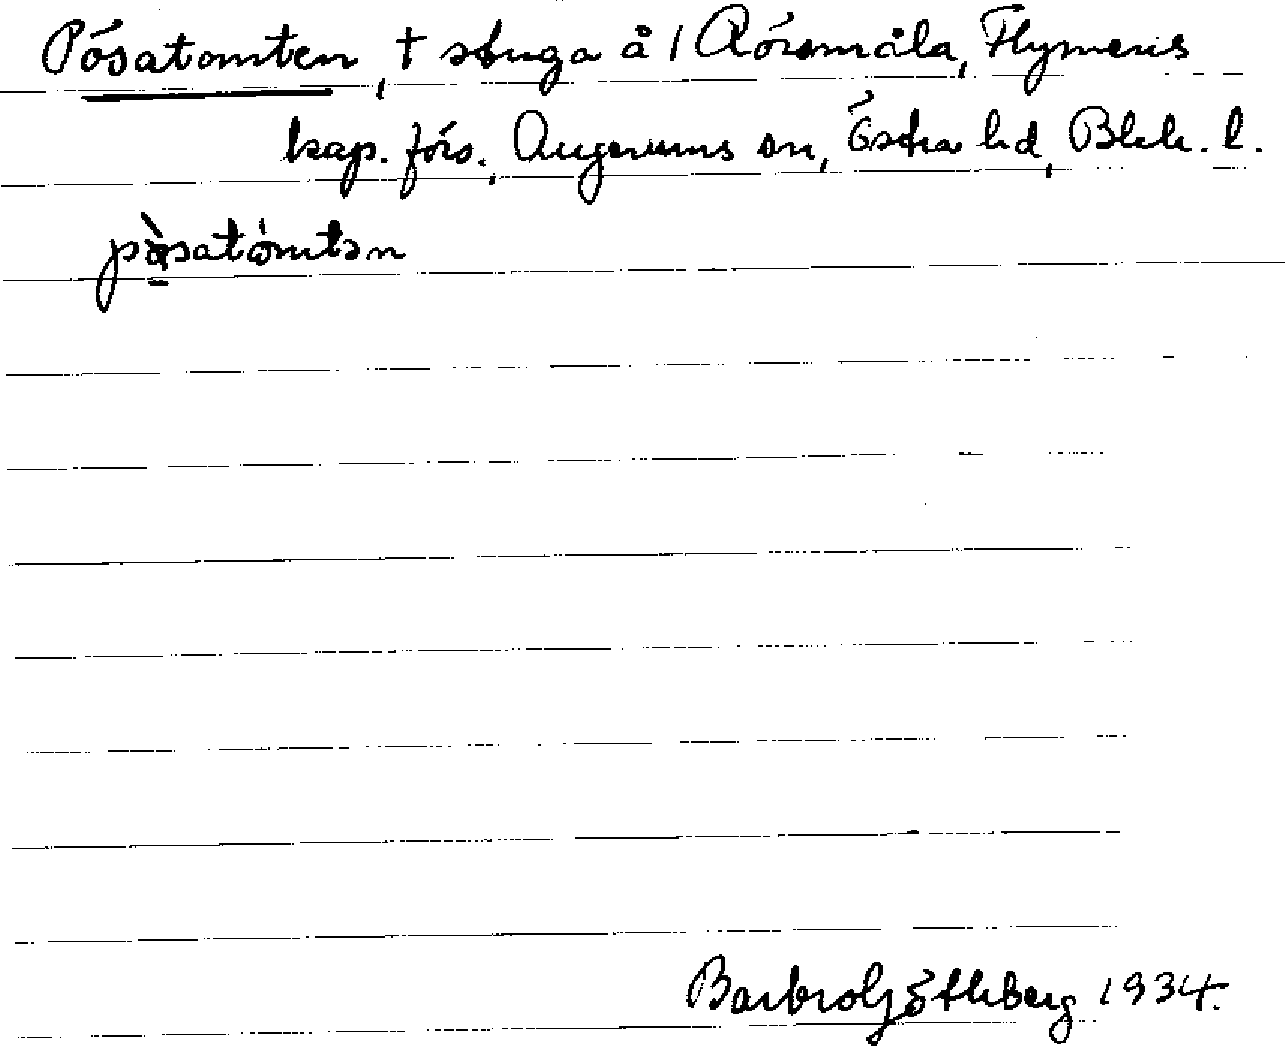 Pósatomten, † stuga å / Rörsmåla, Flymens
kap. förs., Augerums sn, Östra hd, Blek. l.
Barbro Götlberg 1934.